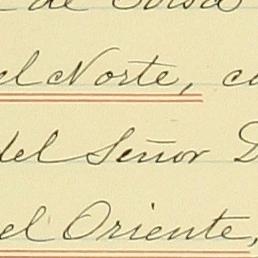 de
el Norte, co
del Señor D
el Oriente,